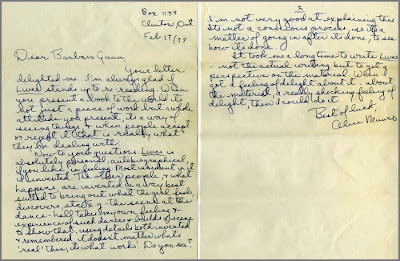 Box 1134
Clinton, Ont
Feb 17/79
Dear Barbara Gunn,
Your letter
delighted me. I'm always glad if
Lives stands up to re-reading. When
you present a book to the world it's
not just a piece of work but a whole
attitude you present, it's a way of
seeing things & when people accept
or reject it that is really what
they're dealing with.
Now to your questions. Lives is
absolutely personal, autobiographical
if you like, in feeling. Most incident in it
is invented. The other people, & what
happens, are invented in a way best
suited to bring out what the girl feels,
discovers, etc. E.g. - the scene at the
dance-hall takes my own feeling &
experience of such dances & builds a scene
to show that, using details both invented
& remembered, it doesn't matter what's
'real' then, it's what works. Do you see?
2
I'm not very good at explaining this.
It's not a conscious process, so it's a
matter of going in after it's done, to see
how it's done.
It took me a long time to write Lives
- not the actual writing but to get a
perspective on the material. When I
got a feeling of delight about it - about
the material, a really shocking feeling of
delight, then I could do it.
Best of luck,
Alice Munro